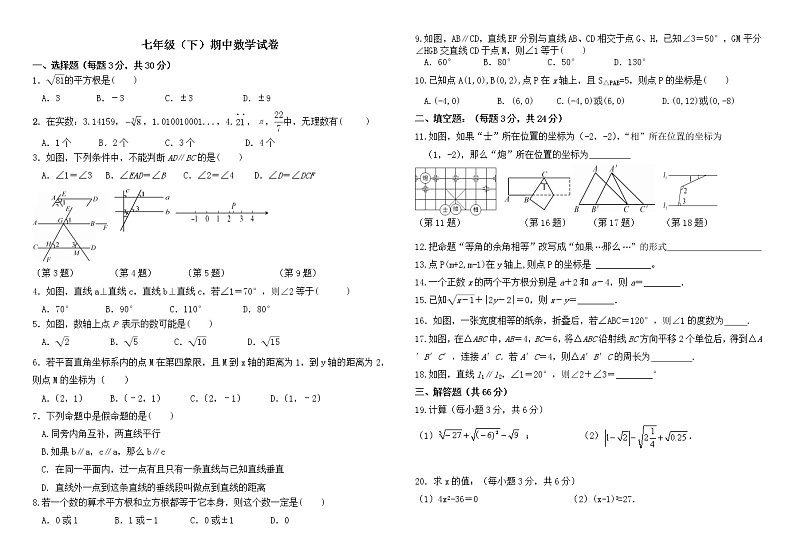 七年级（下）期中数学试卷
一、选择题（每题3分，共30分）
1．√81的平方根是(    )
A．3    B．-3    C．±3    D．±9
2．在实数：3.14159，-∛8，1.010010001...，4.2̇1̇，π，22/7中，无理数有(    )
A．1个    B．2个    C．3个    D．4个
3．如图，下列条件中，不能判断AD∥BC的是(    )
A．∠1=∠3  B．∠EAD=∠B  C．∠2=∠4  D．∠D=∠DCF
（第3题）  （第4题）  （第5题）  （第9题）
4．如图，直线a⊥直线c，直线b⊥直线c，若∠1=70°，则∠2等于(    )
A．70°    B．90°    C．110°    D．80°
5．如图，数轴上点P表示的数可能是(    )
A．√2    B．√5    C．√10    D．√15
6．若平面直角坐标系内的点M在第四象限，且M到x轴的距离为1，到y轴的距离为2，
则点M的坐标为（  ）
A．（2，1）  B．（﹣2，1）  C．（2，﹣1）  D．（1，﹣2）
7．下列命题中是假命题的是(    )
A．同旁内角互补，两直线平行
B．如果b∥a，c∥a，那么b∥c
C．在同一平面内，过一点有且只有一条直线与已知直线垂直
D．直线外一点到这条直线的垂线段叫做点到直线的距离
8.若一个数的算术平方根和立方根都等于它本身，则这个数一定是(    )
A．0或1    B．1或-1    C．0或±1    D．0
9.如图，AB∥CD，直线EF分别与直线AB、CD相交于点G、H，已知∠3=50°，GM平分
∠HGB交直线CD于点M，则∠1等于(    )
A．60°    B．80°    C．50°    D．130°
10.已知点A(1,0),B(0,2),点P在x轴上，且S△PAB=5，则点P的坐标是(    )
A.(-4,0)  B.(6,0)  C.(-4,0)或(6,0)  D.(0,12)或(0,-8)
二、填空题：（每题3分，共24分）
11.如图，如果“士”所在位置的坐标为（-2，-2），“相”所在位置的坐标为
（1，-2），那么“炮”所在位置的坐标为________
（第11题）  （第16题）  （第17题）  （第18题）
12.把命题“等角的余角相等”改写成“如果…那么…”的形式____________________
13.点P(m+2,m-1)在y轴上,则点P的坐标是 __________。
14.一个正数x的两个平方根分别是a＋2和a－4，则a=_______.
15.已知√x-1+|2y-2|=0，则x-y=_______.
16．如图，一张宽度相等的纸条，折叠后，若∠ABC=120°，则∠1的度数为____．
17.如图，在△ABC中，AB=4，BC=6，将△ABC沿射线BC方向平移2个单位后，得到△A
′B′C′，连接A′C．若A′C=4，则△A′B′C的周长为________．
18.如图，直线l₁∥l₂，∠1=20°，则∠2＋∠3=_______°
三、解答题（共66分）
19.计算（每小题3分，共6分）
（1）∛-27+√(-6)²-√9 ；  （2）|1-√2|-√2 1/4+√0.25．
20．求x的值：（每小题3分，共6分）
（1）4x²-36=0  （2）(x-1)³=27.
A
E
D
B
C
F
G
H
M
a
b
c
1
2
3
-1 0 1 2 3 4
P
炮
士
帅
相
A
B
C
1
A
A′
B
B′
C
C′
l₁
l₂
2
3